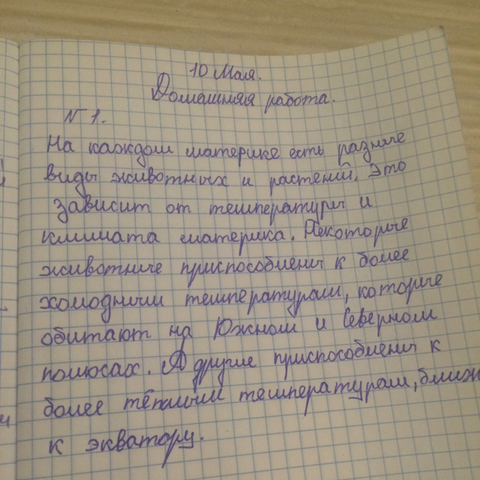 10 Мая.
Домашняя работа.
N 1.
На каждом материке есть разные
виды животных и растений. Это
зависит от температуры и
климата материка. Некоторые
животные приспособлены к более
холодным температурам, которые
обитают на Южном и Северном
полюсах. А другие приспособлены к
более тёплым температурам, ближ
к экватору.